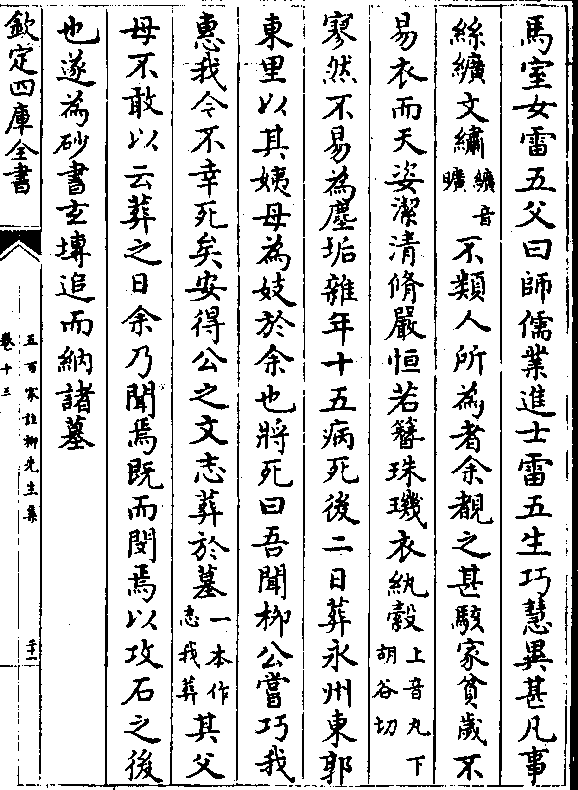 馬室女雷五父曰師儒業進士雷五生巧慧異甚凡事
絲纊文繡纊音曠不類人所為者余覩之甚駭家貧歲不
易衣而天姿潔清脩嚴恒若簪珠璣衣紈縠上音丸下胡谷切
寥然不易為塵垢雜年十五病死後二日葬永州東郭
東里以其姨母為妓於余也將死曰吾聞柳公嘗巧我
惠我今不幸死矣安得公之文志葬於墓一本作志我葬其父
母不敢以云葬之日余乃聞焉既而閔焉以攻石之後
也遂為砂書玄塼追而納諸墓
欽定四庫全書
五百家註柳先生集
卷十三
二十一